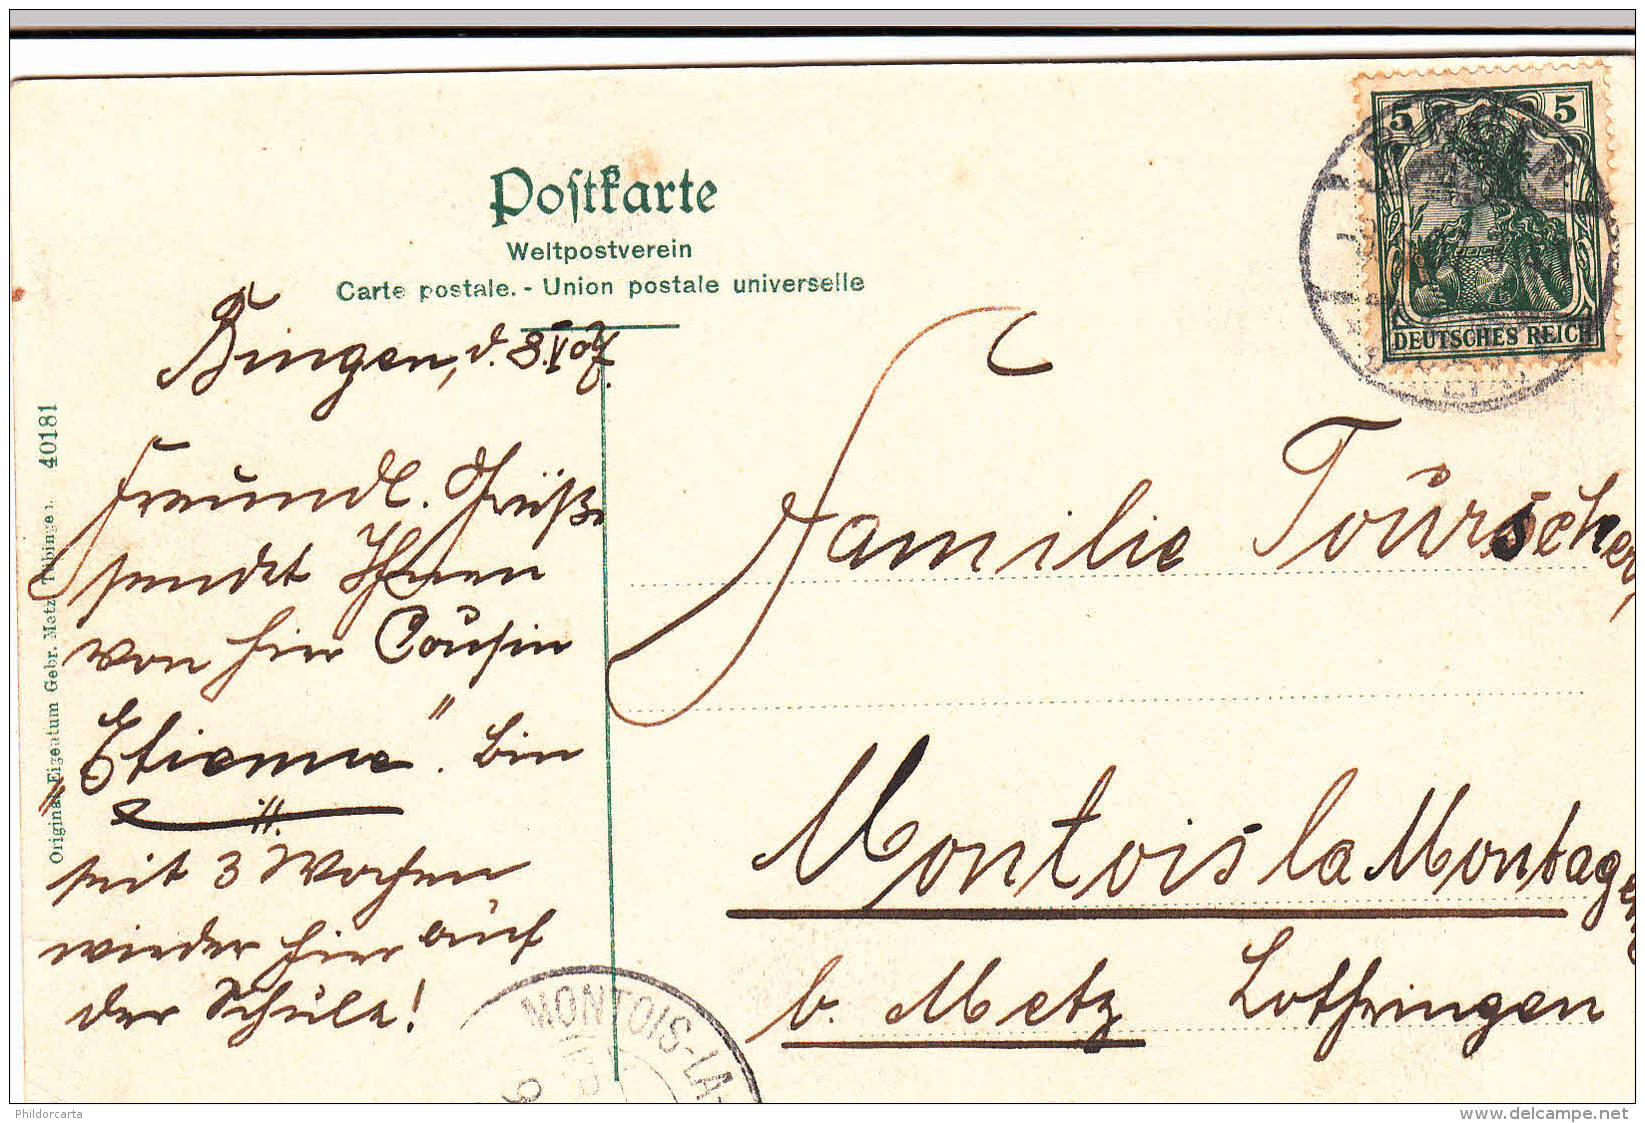 Postkarte
Weltpostverein
Carte postale. - Union postale universelle
5 5
DEUTSCHES REICH
Bingen, d. 8.V.07.
Freundl. Grüße
sendet Ihnen
von hier Cousin
"Etienne". bin
seit 3 Wochen
wieder hier auf
der Schule!
Familie Tourscher,
Montois la Montagne
b. Metz Lothringen
MONTOIS-LA-
Original-Eigentum Gebr. Metz, Tübingen. 40181
Phildorcarta
www.delcampe.net